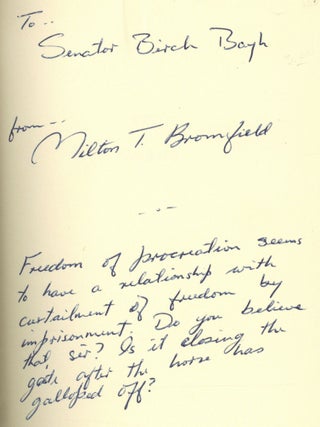 To..
Senator Birch Bayh
from--
Milton T. Bromfield
---
Freedom of procreation seems
to have a relationship with
curtailment of freedom by
imprisonment. Do you believe
that, sir? Is it closing the
gate after the horse has
galloped off?